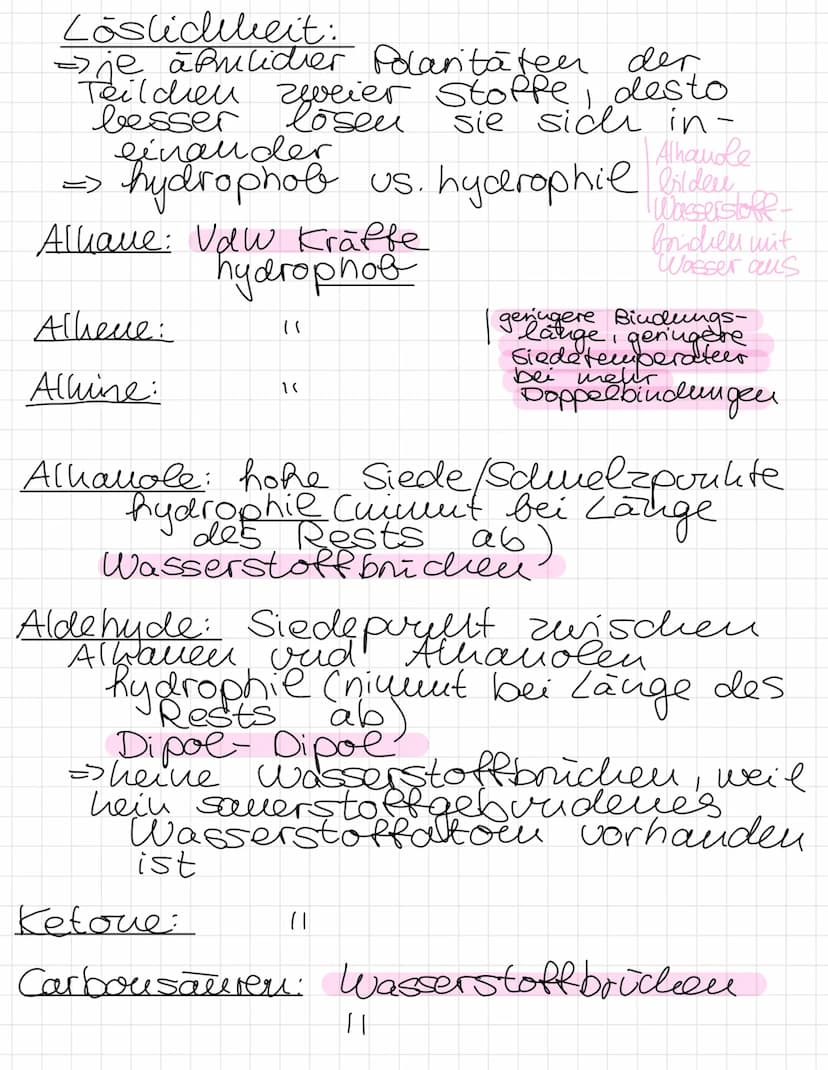 Löslichkeit:
=> je ähnlicher Polaritäten der
Teilchen zweier Stoffe, desto
besser lösen sie sich in-
einander
=> hydrophob vs. hydrophil
Alkanole
bilden
Wasserstoff-
brücken mit
Wasser aus
Alkane: VdW Kräfte
hydrophob
Alkene: "
geringere Bindungs-
länge, geringere
Siedetemperatur
bei mehr
Doppelbindungen
Alkine: "
Alkanole: hohe Siede/Schmelzpunkte
hydrophil (nimmt bei Länge
des Rests ab)
Wasserstoffbrücken
Aldehyde: Siedepunkt zwischen
Alkanen und Alkanolen
hydrophil (nimmt bei Länge des
Rests ab)
Dipol-Dipol
=> keine Wasserstoffbrücken, weil
kein sauerstoffgebundenes
Wasserstoffatom vorhanden
ist
Ketone: "
Carbonsäuren: Wasserstoffbrücken
"